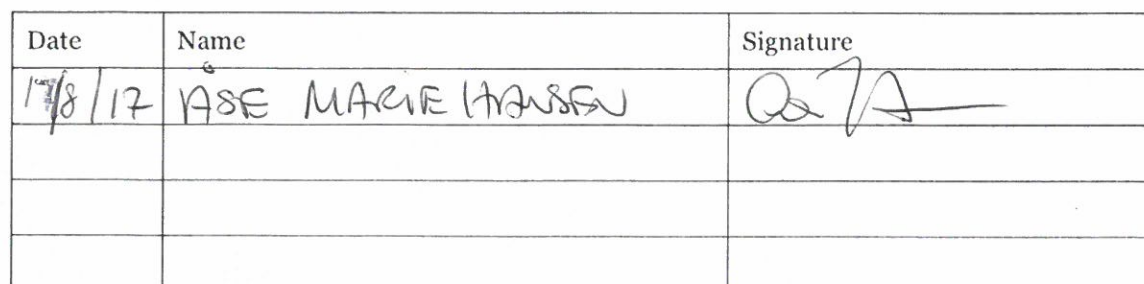 Date Name Signature
/8/17 ÅSE MARIE HANSEN